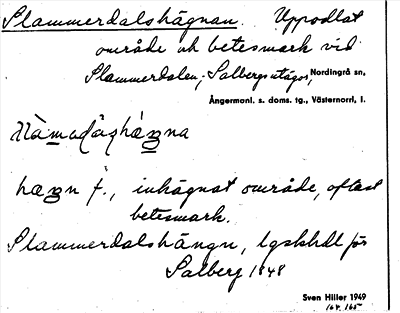 Slammerdalshägnan. Uppodlat
område och betesmark vid
Slammerdalen, Salbergs utägor, Nordingrå sn,
Ångermanl. s. doms. tg., Västernorrl. l.
hæŋn f., inhägnat område, oftast
betesmark.
Slammerdalshängn, lgskhdl för
Salberg 1848
Sven Hiller 1949
164, 165